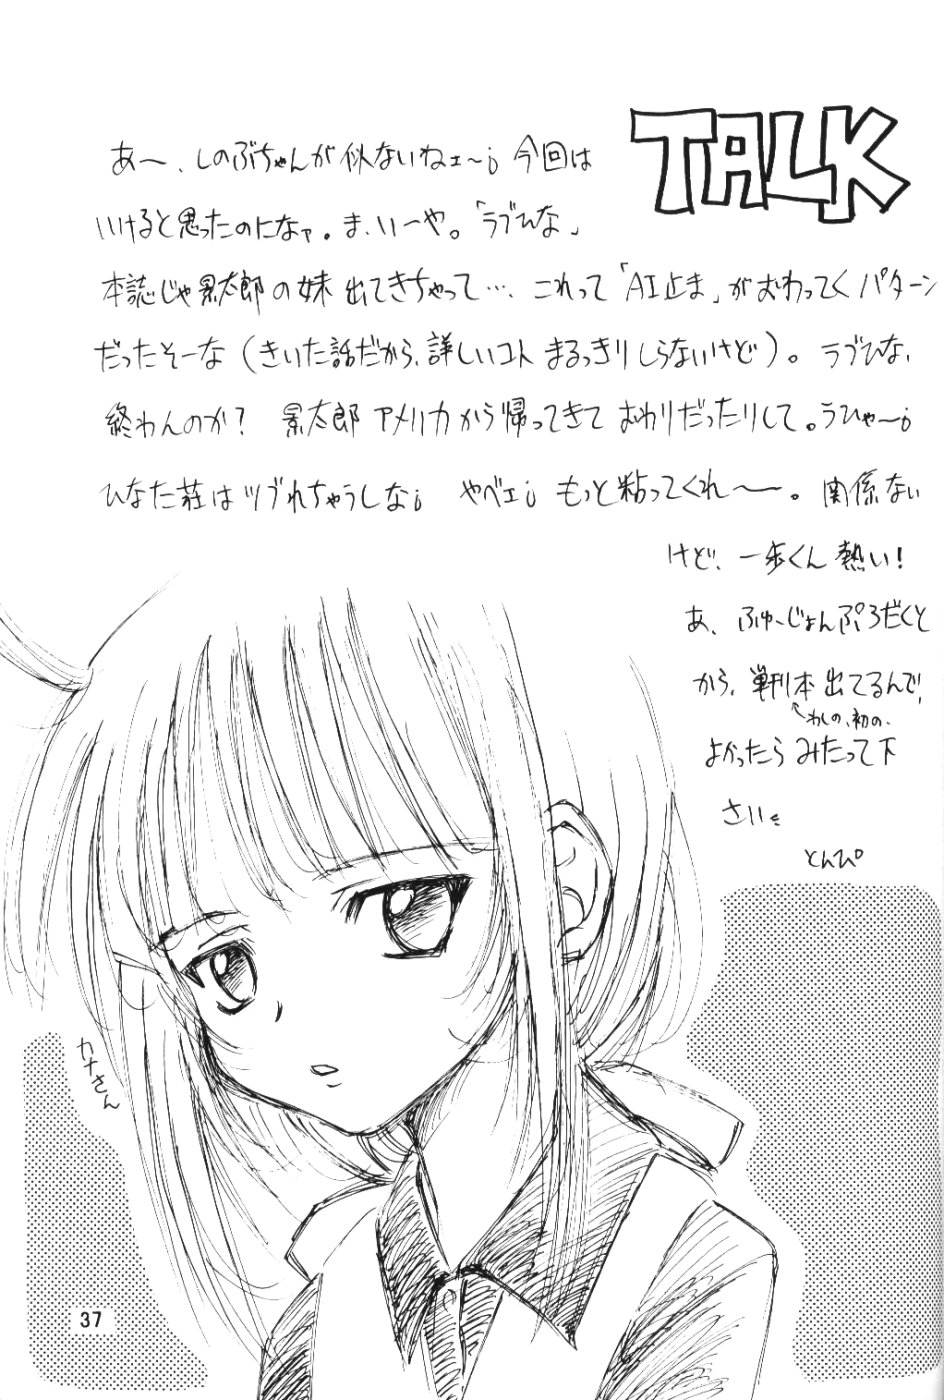 TALK
あ〜、しのぶちゃんが似ないねェ〜；今回は
いけると思ったのになァ。ま、いーや。「ラブひな」
本誌じゃ景太郎の妹出てきちゃって…、これって「AI止ま」がおわってくパターン
だったそーな（きいた話だから、詳しいコトまるっきりしらないけど）。ラブひな、
終わんのか？ 景太郎アメリカから帰ってきておわりだったりして。うひゃ〜；
ひなた荘はツブれちゃうしな； やべェ； もっと粘ってくれ〜〜。関係ない
けど、一歩くん熱い！
あ、ふゅーじょんぷろだくと
から、単刊本出てるんで、
←わしの、初の、
よかったらみたって下
さい
とんぴ
カナさん
37